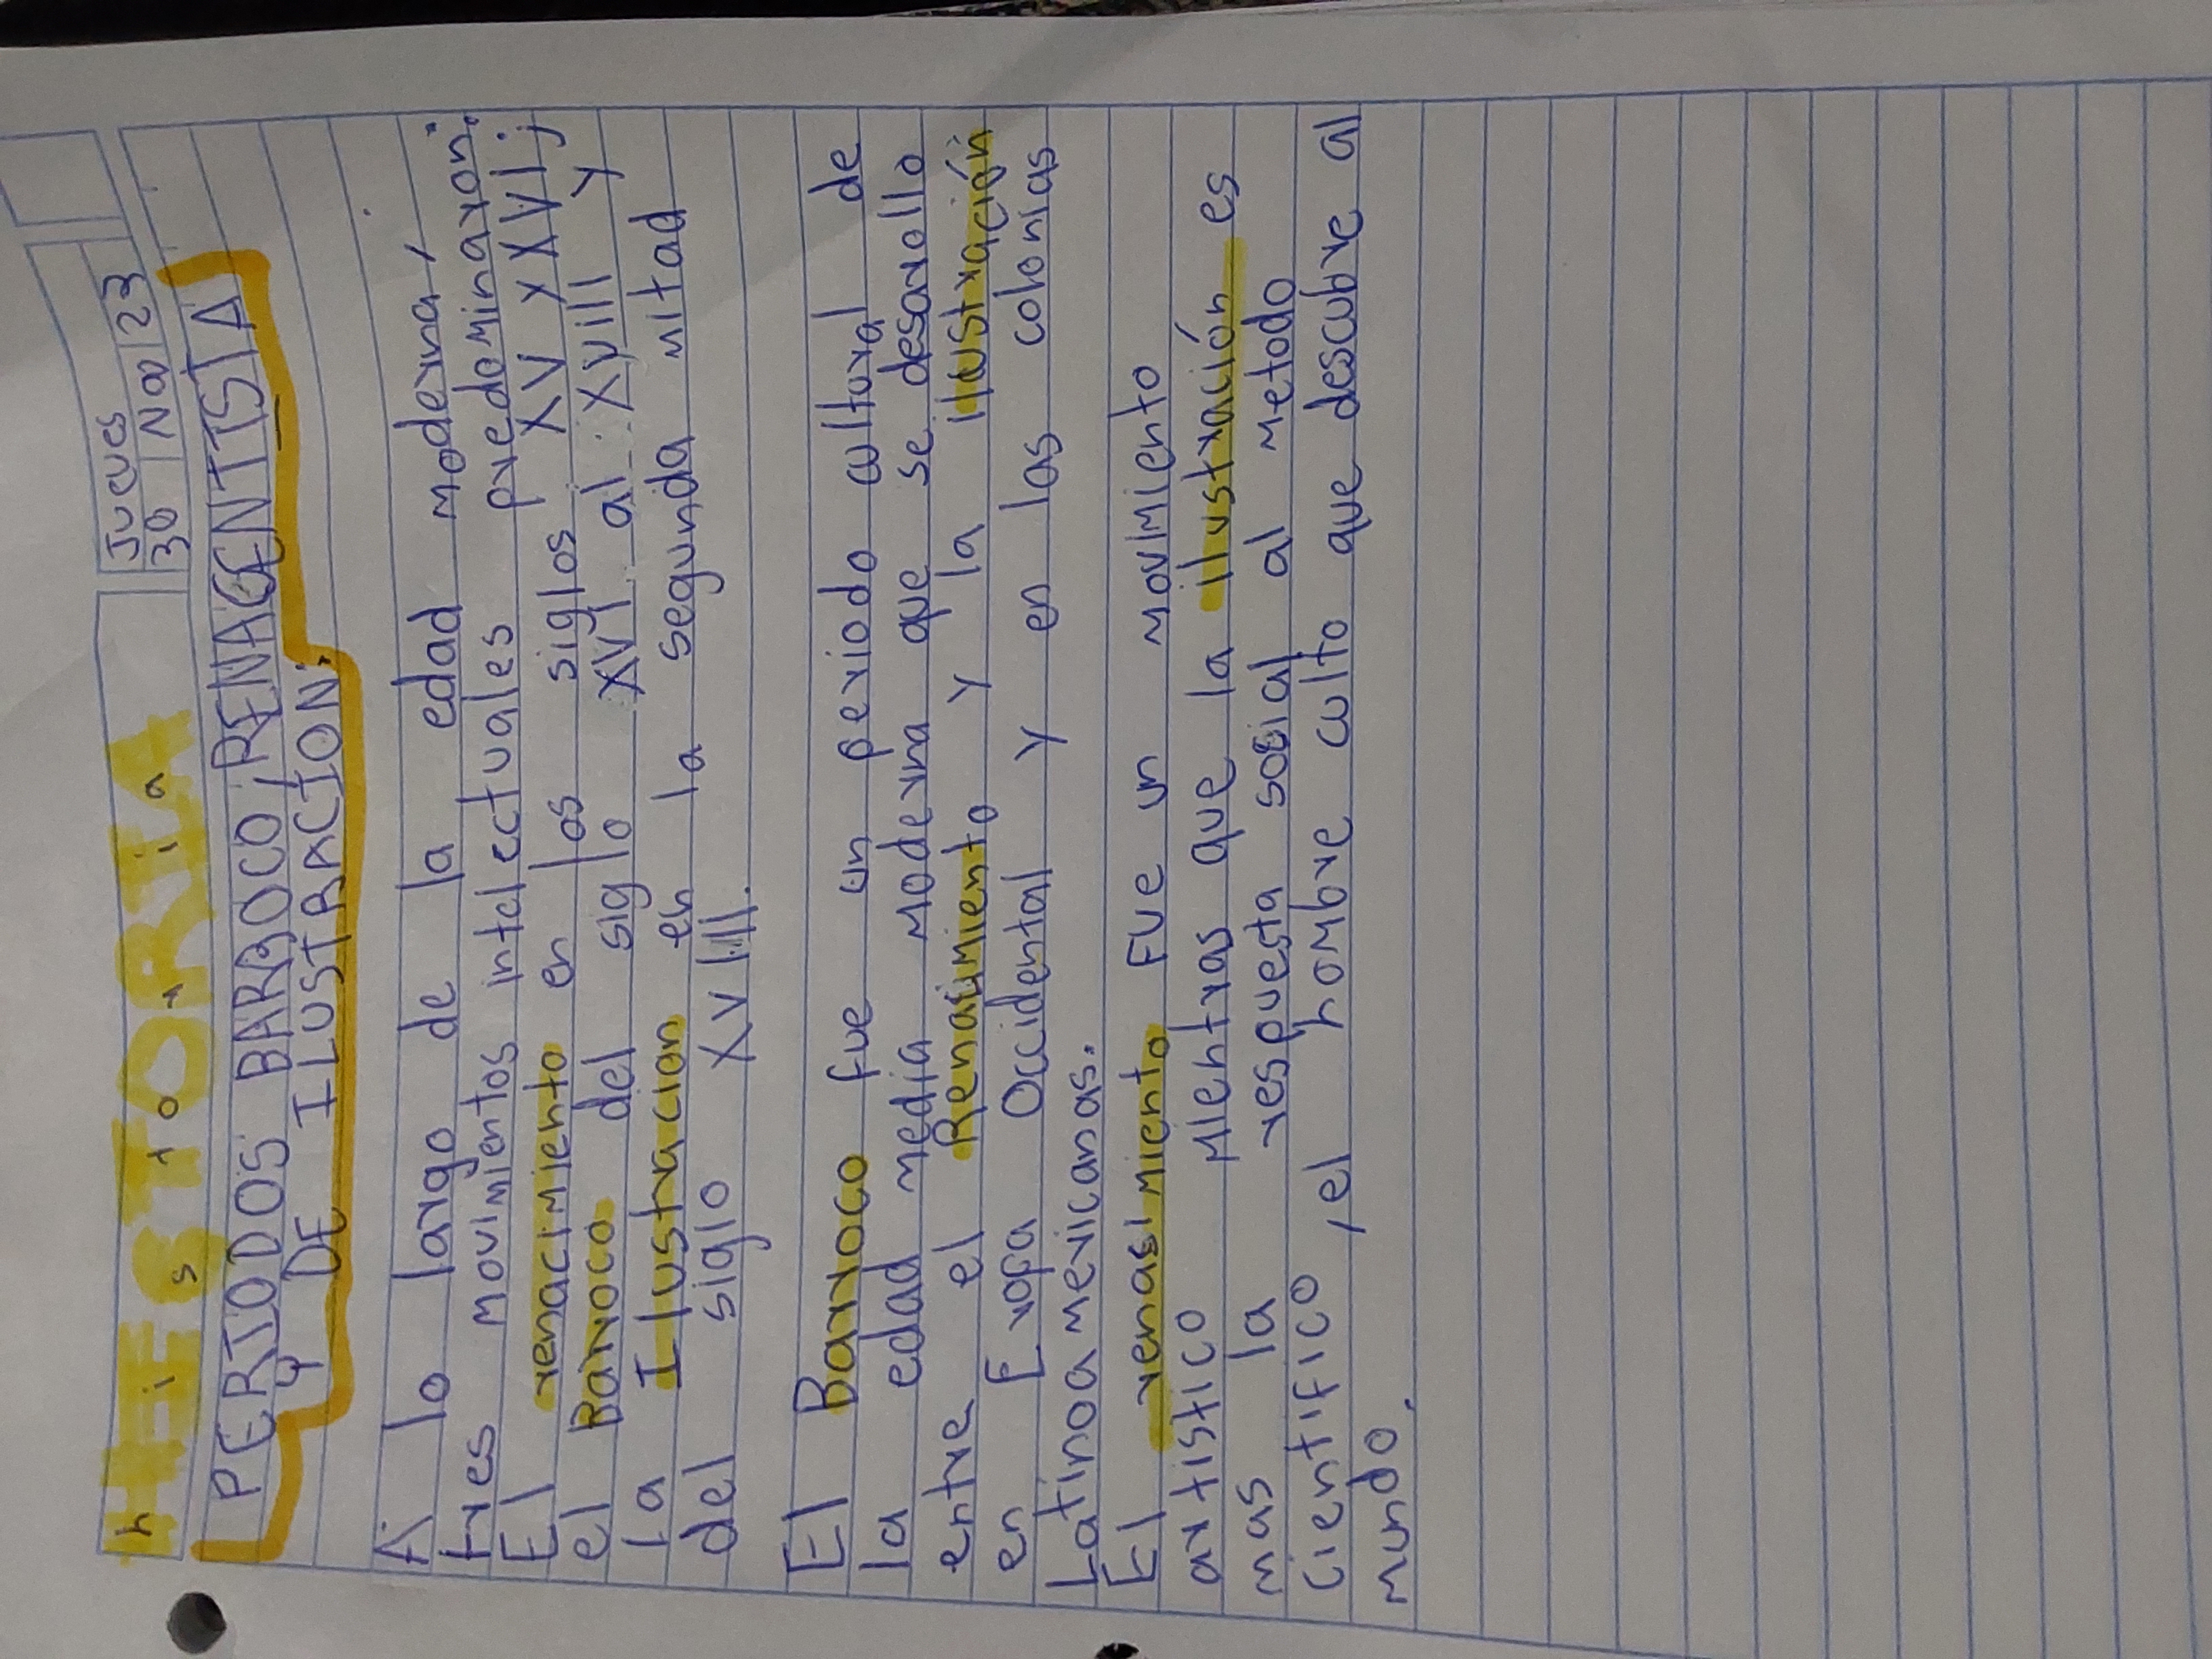 HISTORIA
historia
Jueves
30 Nov 23
PERIODOS BARROCO, RENACENTISTA
Y DE ILUSTRACION:
A lo largo de la edad moderna,
tres movimientos intelectuales predominaron:
El renacimiento en los siglos XV y XVI;
el Barroco del siglo XVI al XVIII y
la Ilustracion en la segunda mitad
del siglo XVIII.
El Barroco fue un periodo cultural de
la edad media moderna que se desarollo
entre el Renacimiento y la ilustración
en Europa Occidental y en las colonias
Latinoamexicanas.
El renasimiento fue un movimiento
artistico mientras que la ilustración es
mas la respuesta social al metodo
cientifico, el hombre culto que descubre al
mundo.